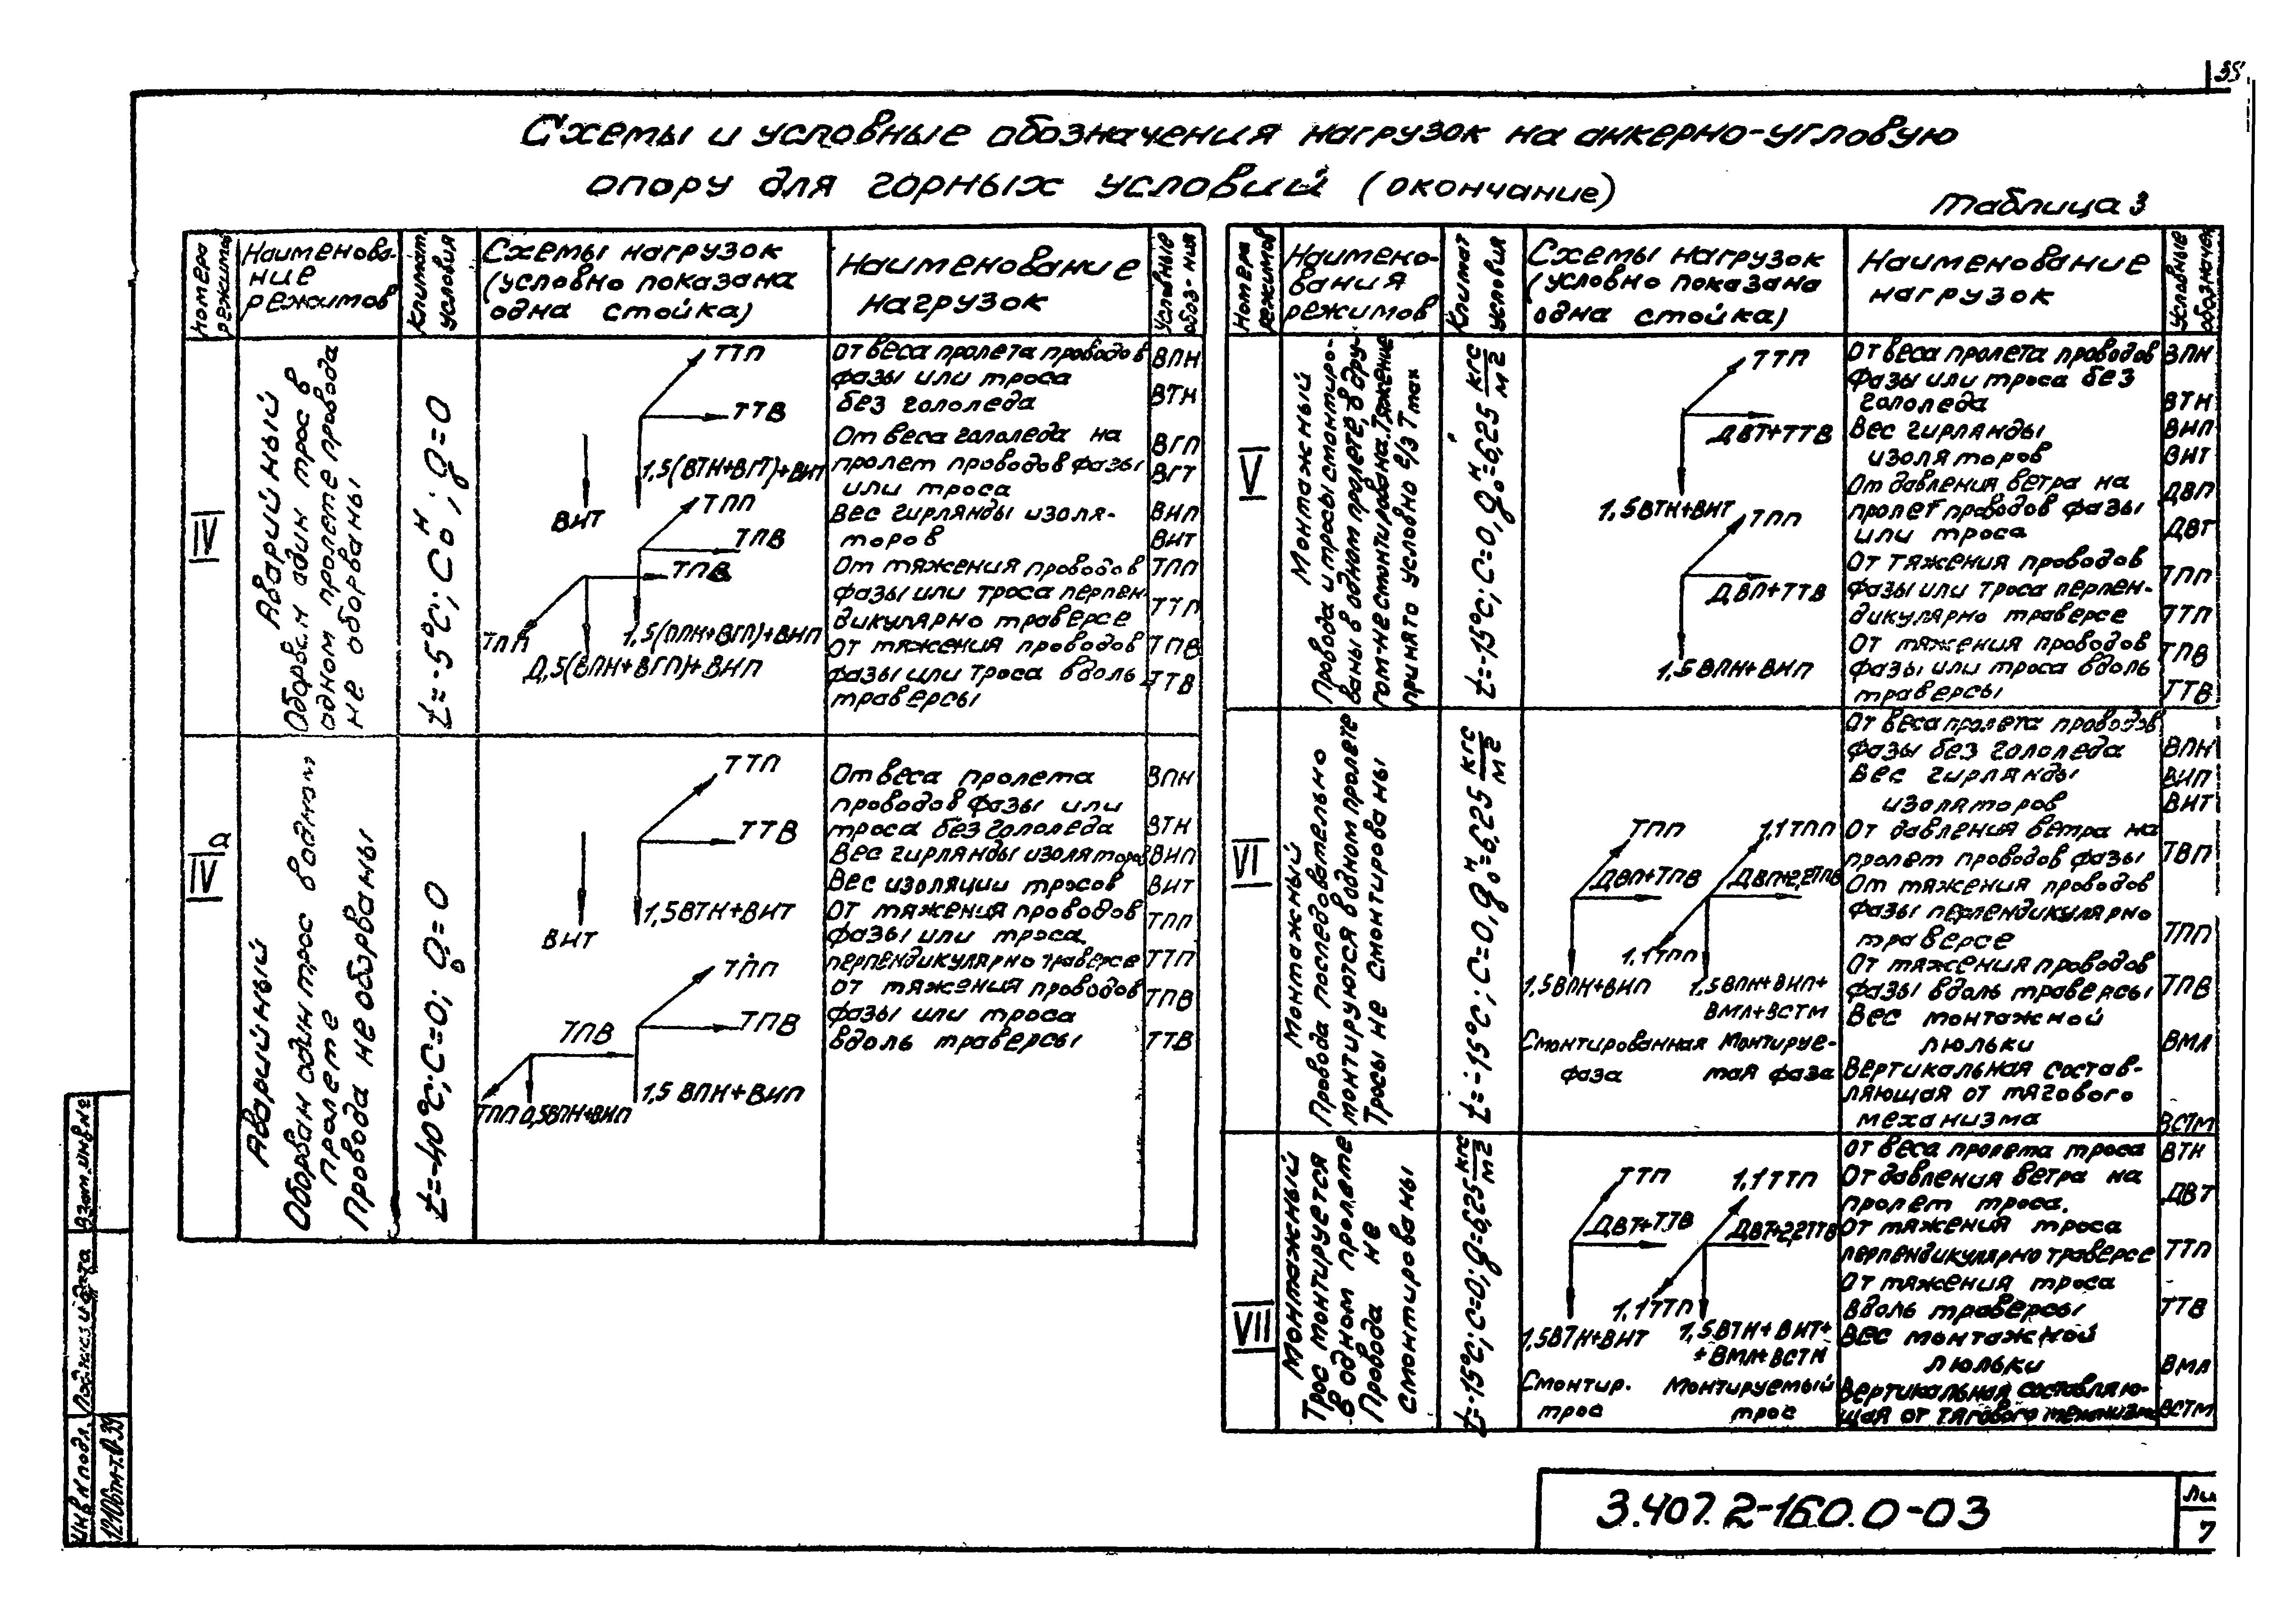 35
Схемы и условные обозначения нагрузок на анкерно-угловую
опору для горных условий (окончание)
Таблица 3
Номера режимов
Наименова-
ние
режимов
Климат. условия
Схемы нагрузок
(условно показана
одна стойка)
Наименование
нагрузок
Условные обоз-ния
IV
Аварийный
Оборван один трос в
одном пролете провода
не оборваны
t=-5°C; C₀ᴴ; q=0
ТТП
ТТВ
1,5(ВТН+ВГТ)+ВИТ
ВИТ
ТПП
ТПВ
ТПВ
ТПП
1,5(ВПН+ВГП)+ВИП
0,5(ВПН+ВГП)+ВИП
От веса пролета проводов
фазы или троса
без гололеда
От веса гололеда на
пролет проводов фазы
или троса
Вес гирлянды изоля-
торов
От тяжения проводов
фазы или троса перпен
дикулярно траверсе
От тяжения проводов
фазы или троса вдоль
траверсы
ВПН
ВТН
ВГП
ВГТ
ВИП
ВИТ
ТПП
ТТП
ТПВ
ТТВ
IVа
Аварийный
Оборван один трос в одном
пролете
Провода не оборваны
t=-40°C; C=0; q=0
ТТП
ТТВ
1,5ВТН+ВИТ
ВИТ
ТПП
ТПВ
ТПВ
1,5 ВПН+ВИП
ТПП 0,5ВПН+ВИП
От веса пролета
проводов фазы или
троса без гололеда
Вес гирлянды изоляторов
Вес изоляции тросов
От тяжения проводов
фазы или троса
перпендикулярно траверсе
от тяжения проводов
фазы или троса
вдоль траверсы
ВПН
ВТН
ВИП
ВИТ
ТПП
ТТП
ТПВ
ТТВ
Номера режимов
Наимено-
вания
режимов
Климат условия
Схемы нагрузок
(условно показана
одна стойка)
Наименование
нагрузок
Условные обозначен
V
Монтажный
Провода и тросы смонтиро-
ваны в одном пролете, в дру-
гом-не смонтирована. Тяжение
принято условно 2/3 Tmax
t=-15°C; C=0, q₀ᴴ=6,25 кгс/м2
ТТП
ДВТ+ТТВ
1,5ВТН+ВИТ
ТПП
ДВП+ТТВ
1,5 ВПН+ВИП
От веса пролета проводов
фазы или троса без
гололеда
Вес гирлянды
изоляторов
От давления ветра на
пролет проводов фазы
или троса
От тяжения проводов
фазы или троса перпен-
дикулярно траверсе
От тяжения проводов
фазы или троса вдоль
траверсы
ВПН
ВТН
ВИП
ВИТ
ДВП
ДВТ
ТПП
ТТП
ТПВ
ТТВ
VI
Монтажный
Провода последовательно
монтируются в одном пролете
Тросы не смонтированы
t=-15°C; C=0, q₀ᴴ=6,25 кгс/м2
ТПП
ДВП+ТПВ
1,5ВПН+ВИП
Смонтированная
фаза
1,1ТПП
ДВП+2,2ТПВ
1,1ТПП
1,5ВПН+ВИП+
ВМЛ+ВСТМ
Монтируе-
мая фаза
От веса пролета проводов
фазы без гололеда
Вес гирлянды
изоляторов
От давления ветра на
пролет проводов фазы
От тяжения проводов
фазы перпендикулярно
траверсе
От тяжения проводов
фазы вдоль траверсы
Вес монтажной
люльки
Вертикальная состав-
ляющая от тягового
механизма
ВПН
ВИП
ВИТ
ТВП
ТПП
ТПВ
ВМЛ
ВСТМ
VII
Монтажный
Трос монтируется
в одном пролете
Провода не
смонтированы
t=-15°C; C=0; q=6,25 кгс/м2
ТТП
ДВТ+ТТВ
1,5ВТН+ВИТ
Смонтир.
трос
1,1ТТП
ДВТ+2,2ТТВ
1,1ТТП
1,5ВТН+ВИТ+
+ВМЛ+ВСТМ
Монтируемый
трос
От веса пролета троса
От давления ветра на
пролет троса.
От тяжения троса
перпендикулярно траверсе
От тяжения троса
вдоль траверсы
Вес монтажной
люльки
Вертикальная составляю-
щая от тягового механизма
ВТН
ДВТ
ТТП
ТТВ
ВМЛ
ВСТМ
Взам.инв.№
Подпись и дата
Инв N подл.
3.407.2-160.0-03
Ли
7